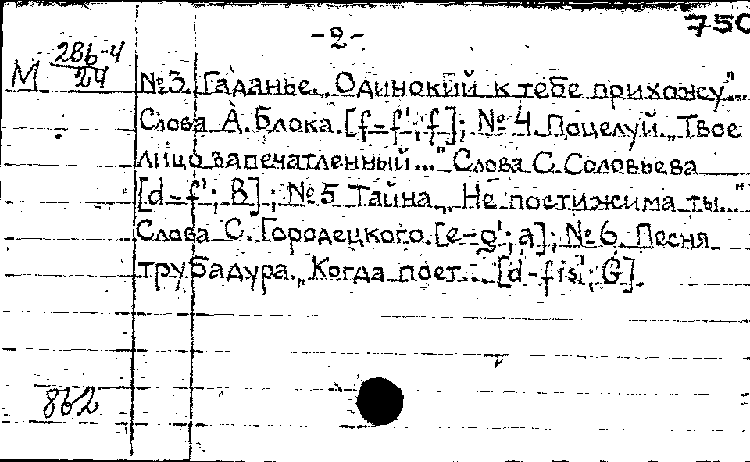 -2-
750
М 286-4
24
№3. Гаданье. „Одинокий к тебе прихожу"...
Слова А. Блока. [f-f'; f]; №4. Поцелуй. „Твое
лицо запечатленный..." Слова С. Соловьева
[d-f'; B]; №5 Тайна. „Не постижима ты..."
Слова С. Городецкого. [e-g'; a]; №6. Песня
трубадура. „Когда поет... [d-fis'; G].
862